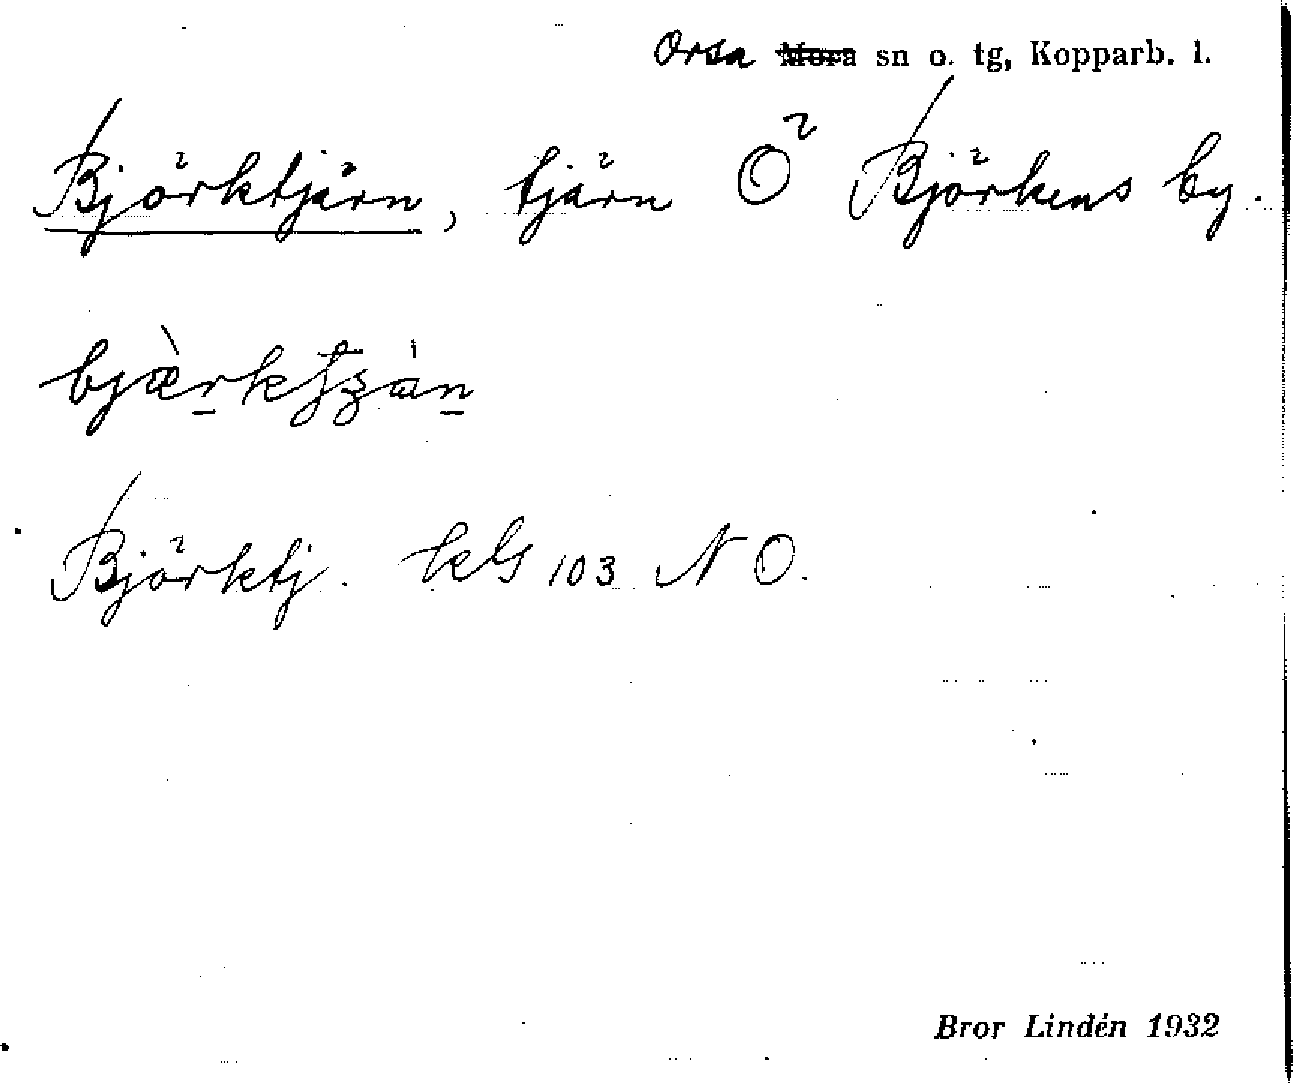 Orsa Mora sn o. tg, Kopparb. l.
Björktjärn, tjärn Ö Björkens by.
Björktj. kbl 103 NO.
Bror Lindén 1932